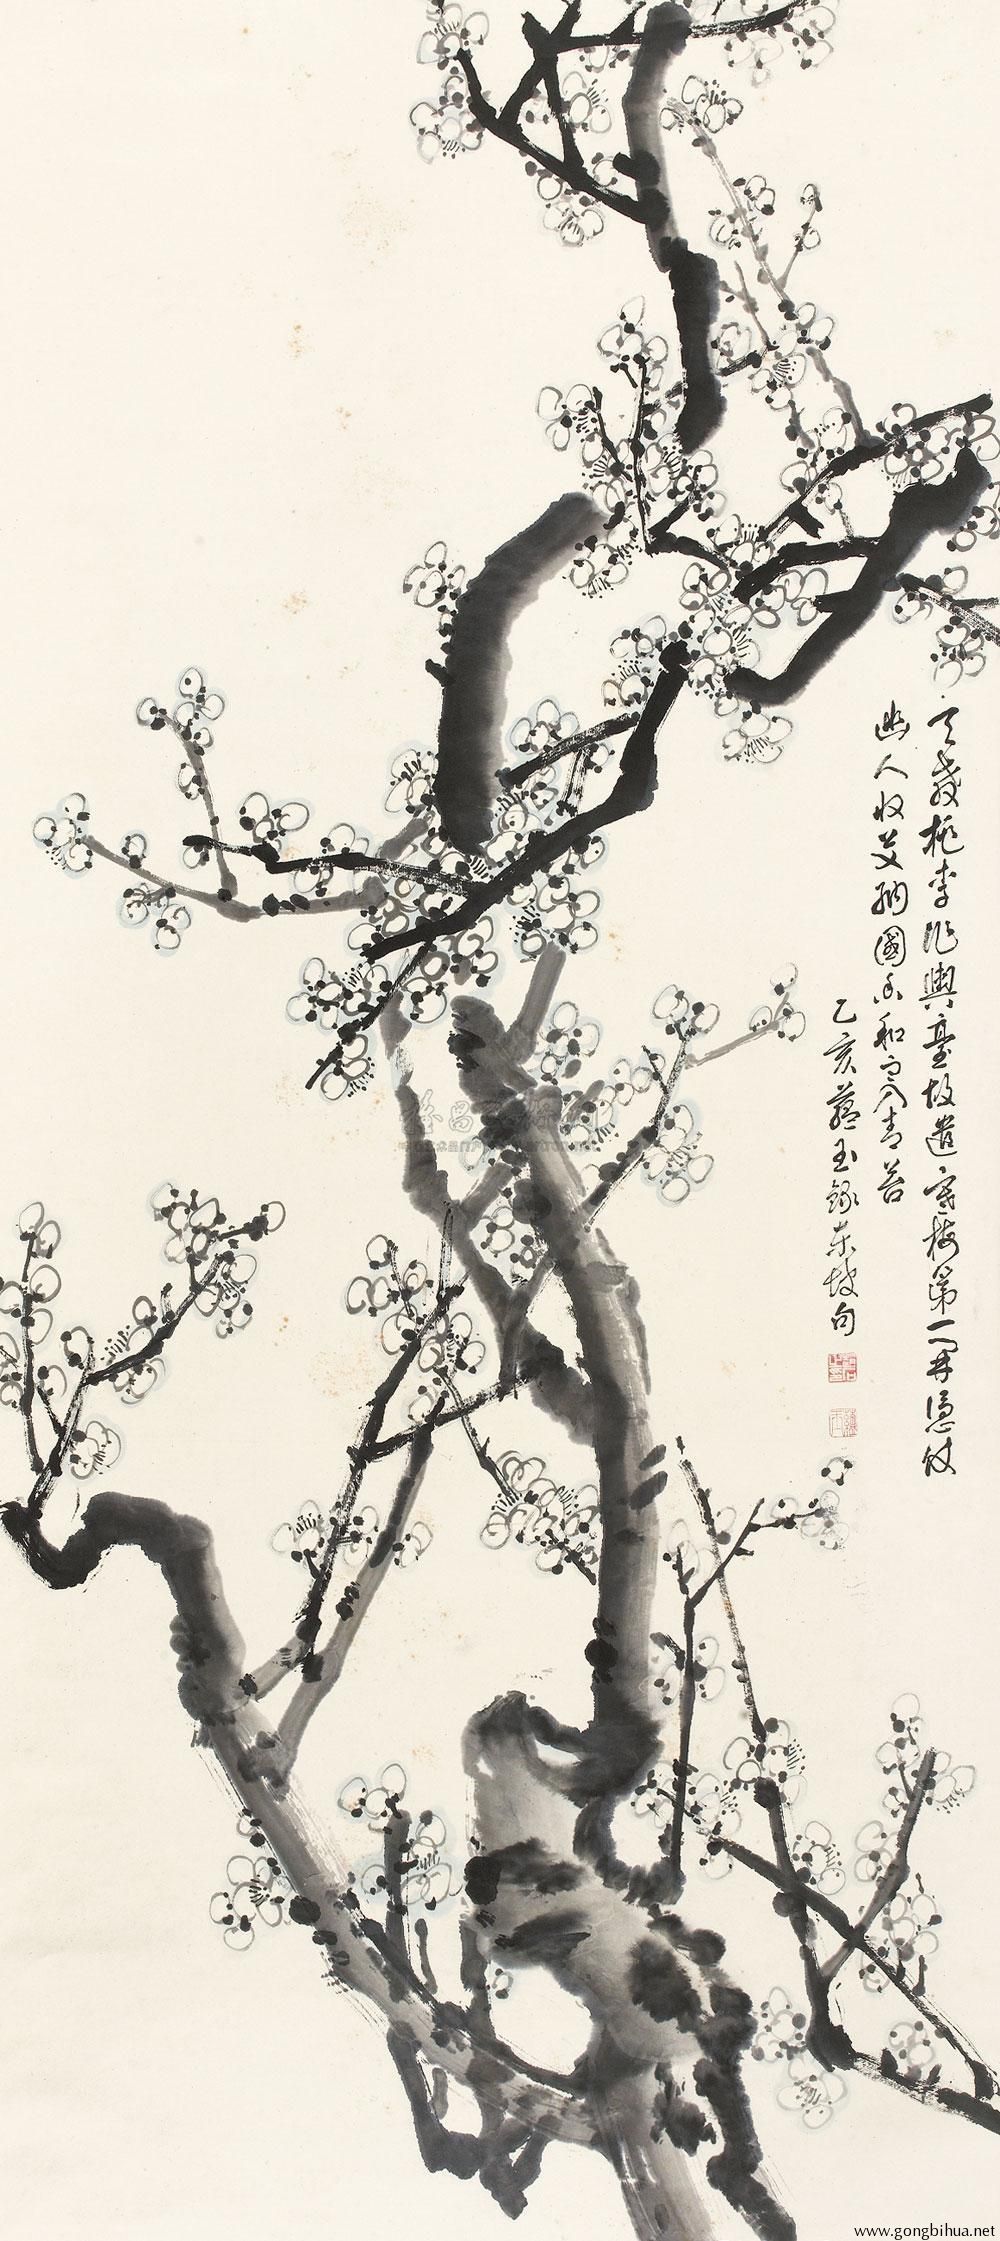 天教桃李作輿臺故遣寒梅第一開憑仗
幽人收艾納國香和雨入青苔
乙亥蘊玉錄東坡句
www.gongbihua.net